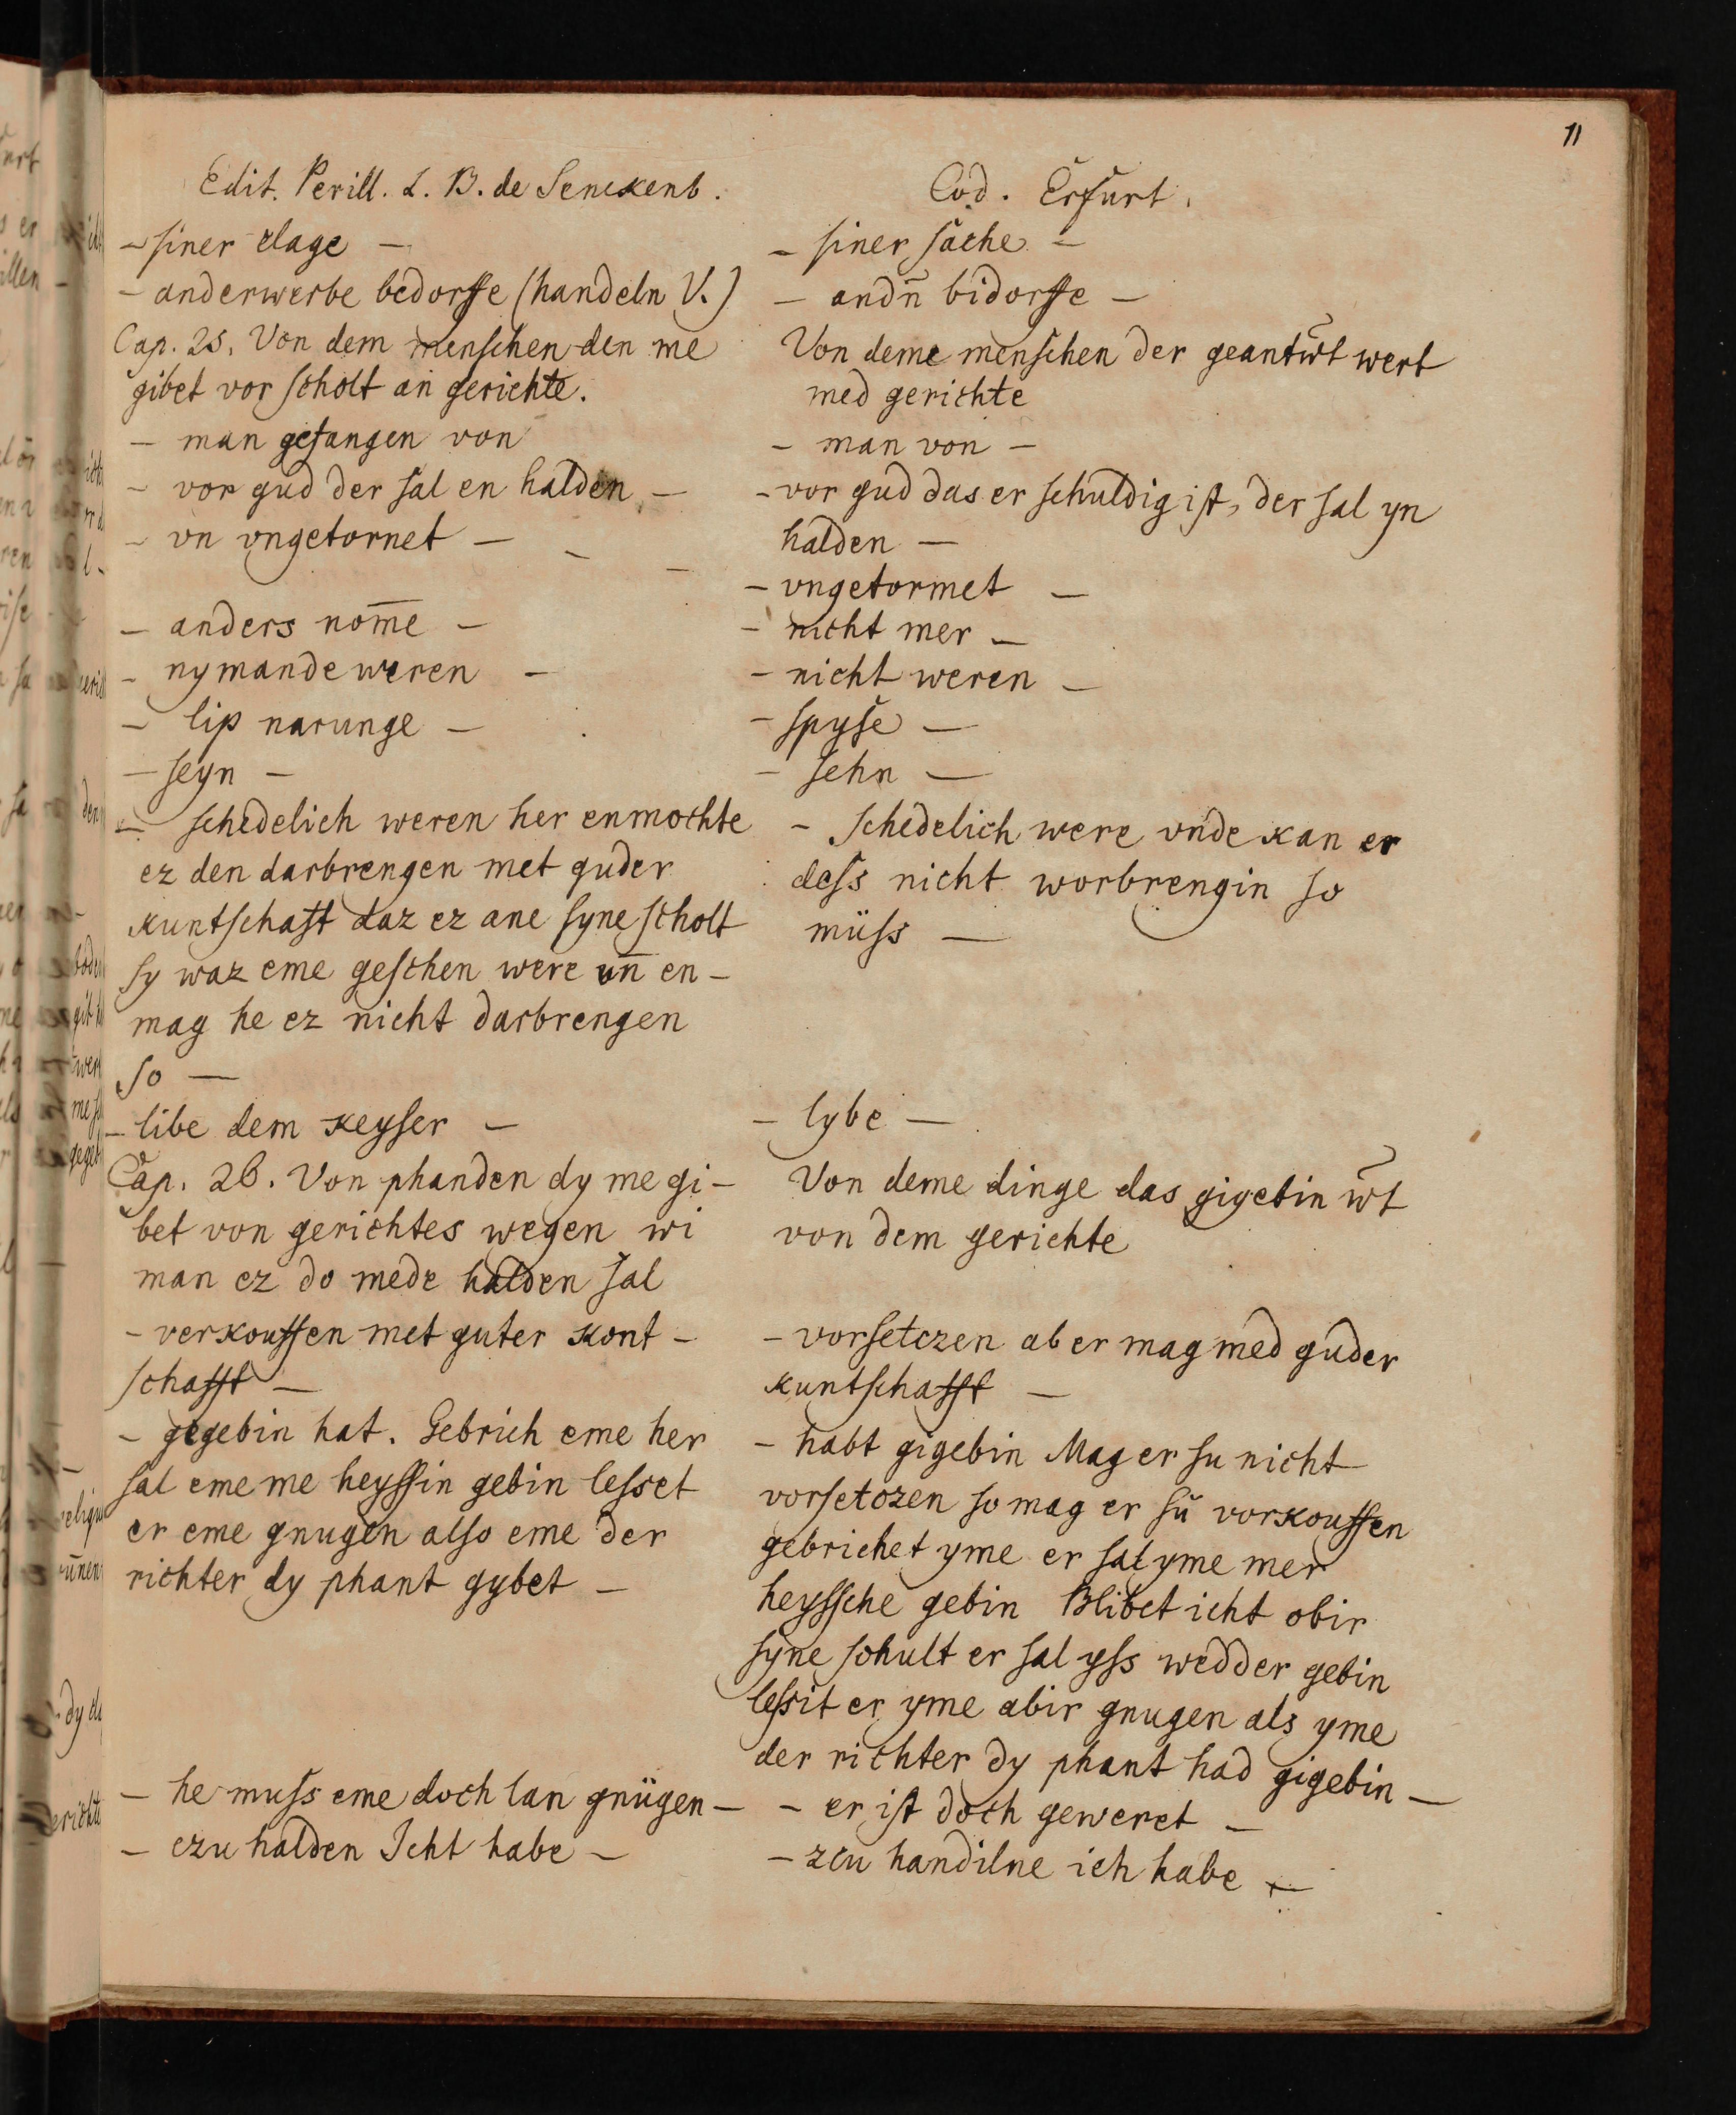 11
Edit. Perill. L. B. de Senckenb.
– siner clage –
– anderwerbe bedorffe (handeln V.)
Cap. 25. Von dem menschen den me
gibet vor scholt an gerichte.
– man gefangen von
– vor gud der sal en halden –
– vn vngetornet –
– anders nom̄e –
– nymande weren –
– lip narunge –
– seyn –
– schedelich weren her enmochte
ez den darbrengen met guder
kuntschaft daz ez ane syne scholt
sy waz eme geschen were un̄ en-
mag he ez nicht darbrengen
so –
– libe dem keyser –
Cap. 26. Von phanden dy me gi-
bet von gerichtes wegen wi
man ez do mede halden sal
– verkouffen met guter kont-
schafft –
– gegebin hat. Gebrich eme her
sal eme me heyssin gebin lesset
er eme gnugen also eme der
richter dy phant gybet –
– he muss eme doch lan gnügen –
– czu halden Icht habe –
Cod. Erfurt.
– siner sache –
– andn̄ bidorffe –
Von deme menschen der geantw̄t wert
med gerichte
– man von –
– vor gud das er schuldig ist, der sal yn
halden –
– vngetormet –
– nicht mer –
– nicht weren –
– spyse –
– sehn –
– schedelich were vnde kan er
dess nicht worbrengin so
müss –
– lybe –
Von deme dinge das gigebin w̄t
von dem gerichte
– vorsetczen ab er mag med guder
kuntschafft –
– habt gigebin Mag er su nicht
vorsetczen so mag er sü vorkouffen
gebrichet yme er sal yme mer
heyssche gebin Blibet icht obir
syne schult er sal yss wedder gebin
lessit er yme abir gnugen als yme
der richter dy phant had gigebin –
– er ist doch geweret –
– zcu handilne ich habe –